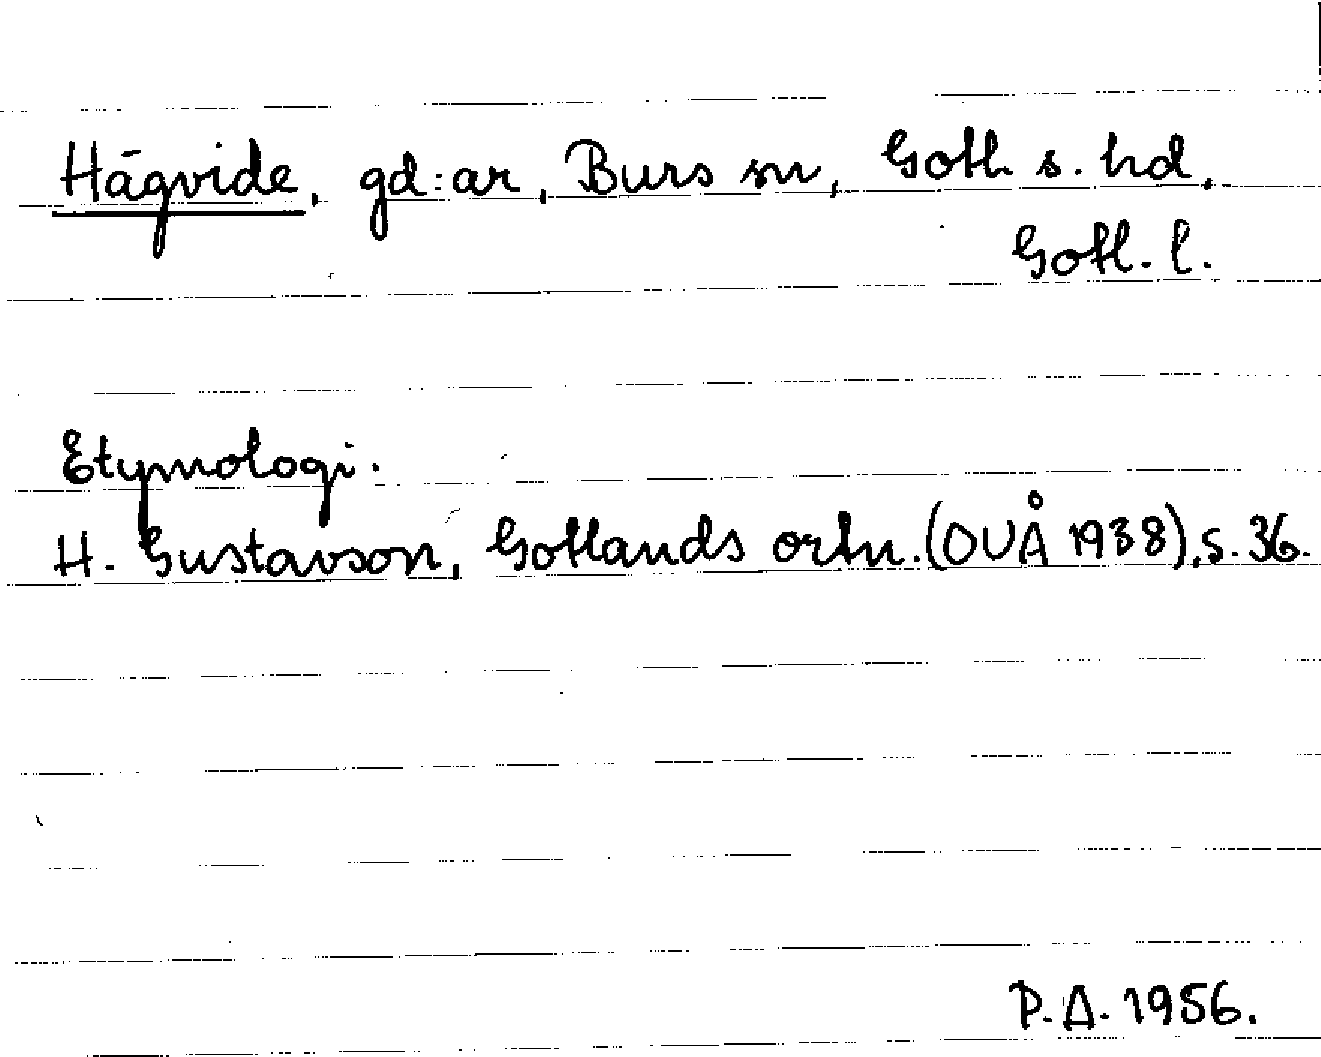 Hägvide, gd:ar, Burs sn, Gotl. s. hd,
Gotl. l.
Etymologi:
H. Gustavson, Gotlands ortn. (OUÅ 1938), s. 36.
P. A. 1956.